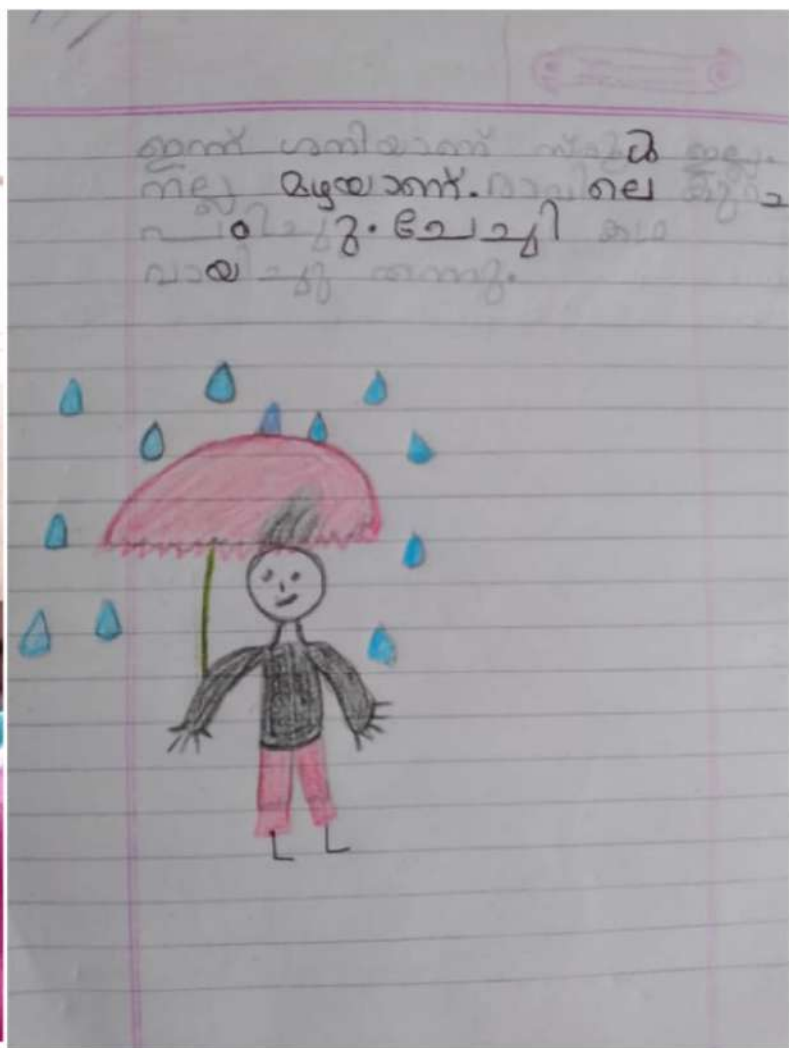 ഇന്ന് ശനിയാണ് സ്കൂൾ ഇല്ല.
നല്ല മഴയാണ്. രാവിലെ കുറച
പഠിച്ചു. ചേച്ചി കഥ
വായിച്ചു തന്നു.